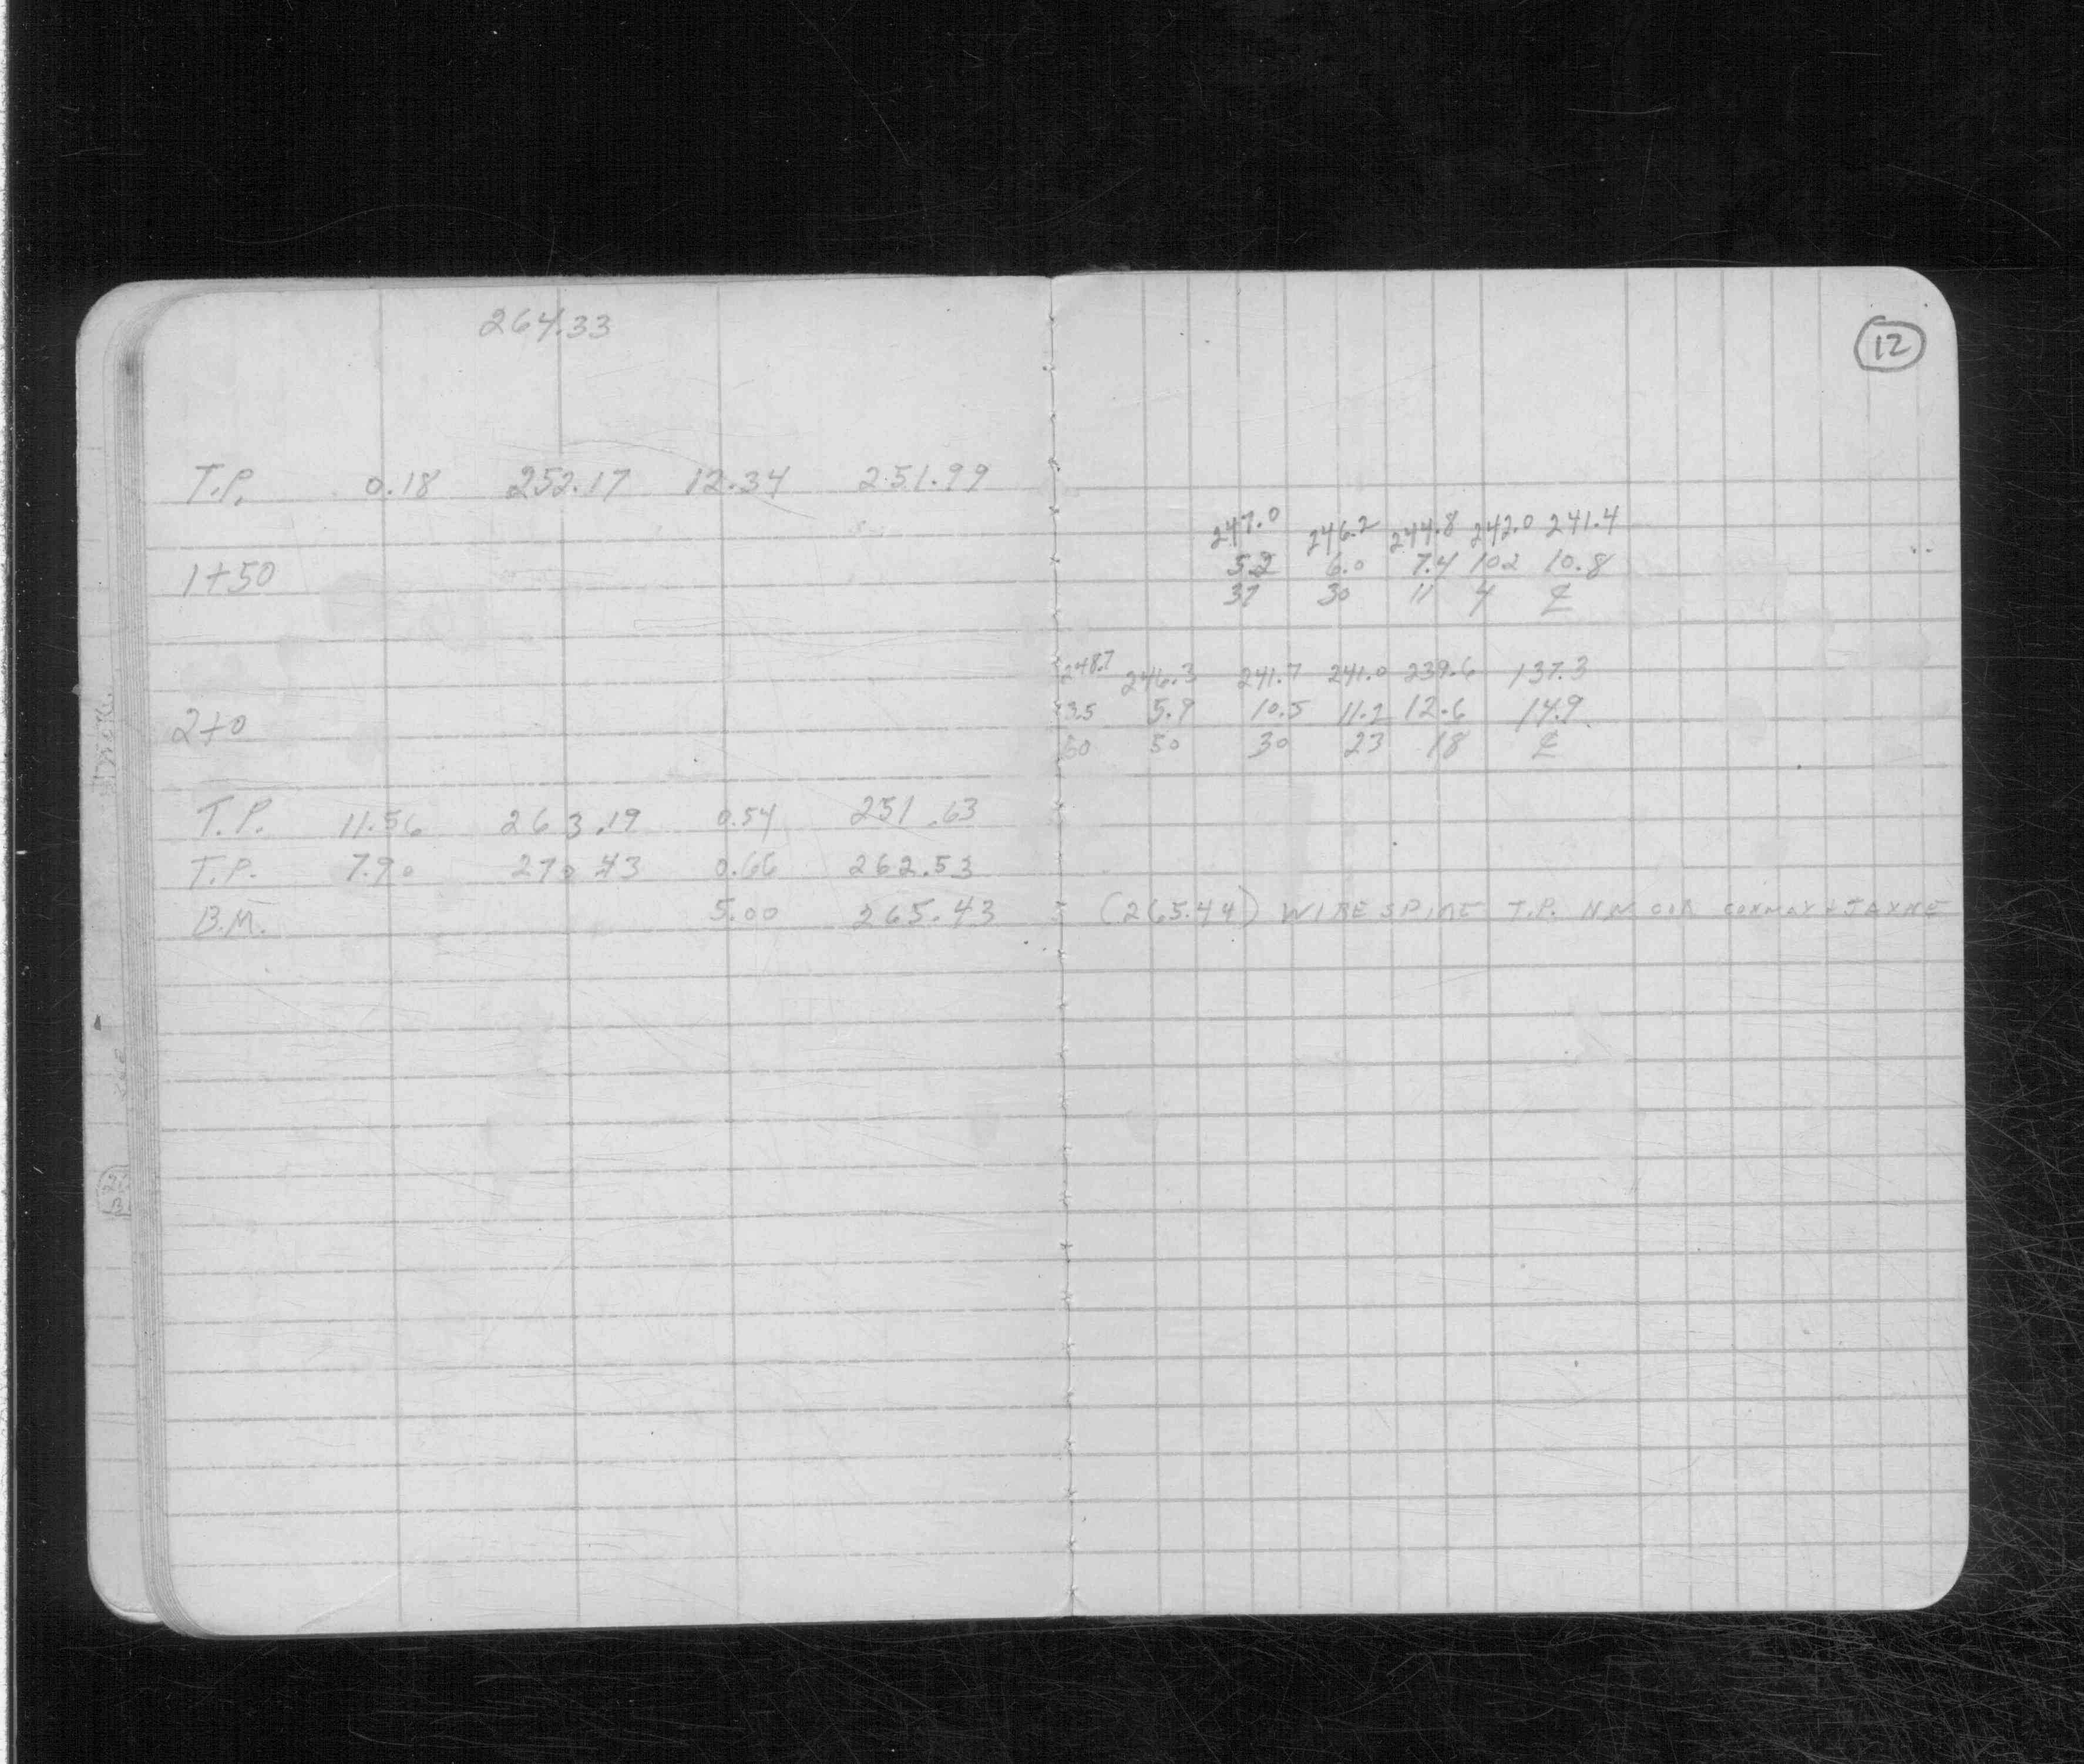 264.33
12
T.P. 0.18 252.17 12.34 251.99
247.0 246.2 244.8 242.0 241.4
5.2 6.0 7.4 10.2 10.8
1+50
37 30 11 4 ℄
248.7 246.3 241.7 241.0 239.6 137.3
3.5 5.9 10.5 11.2 12.6 14.9
2+0
50 30 23 18 ℄
T.P. 11.56 263.19 0.54 251.63
T.P. 7.90 270.43 0.66 262.53
B.M. 5.00 265.43 (265.44) WIRE SPIKE T.P. COR CONWAY + JAYNE